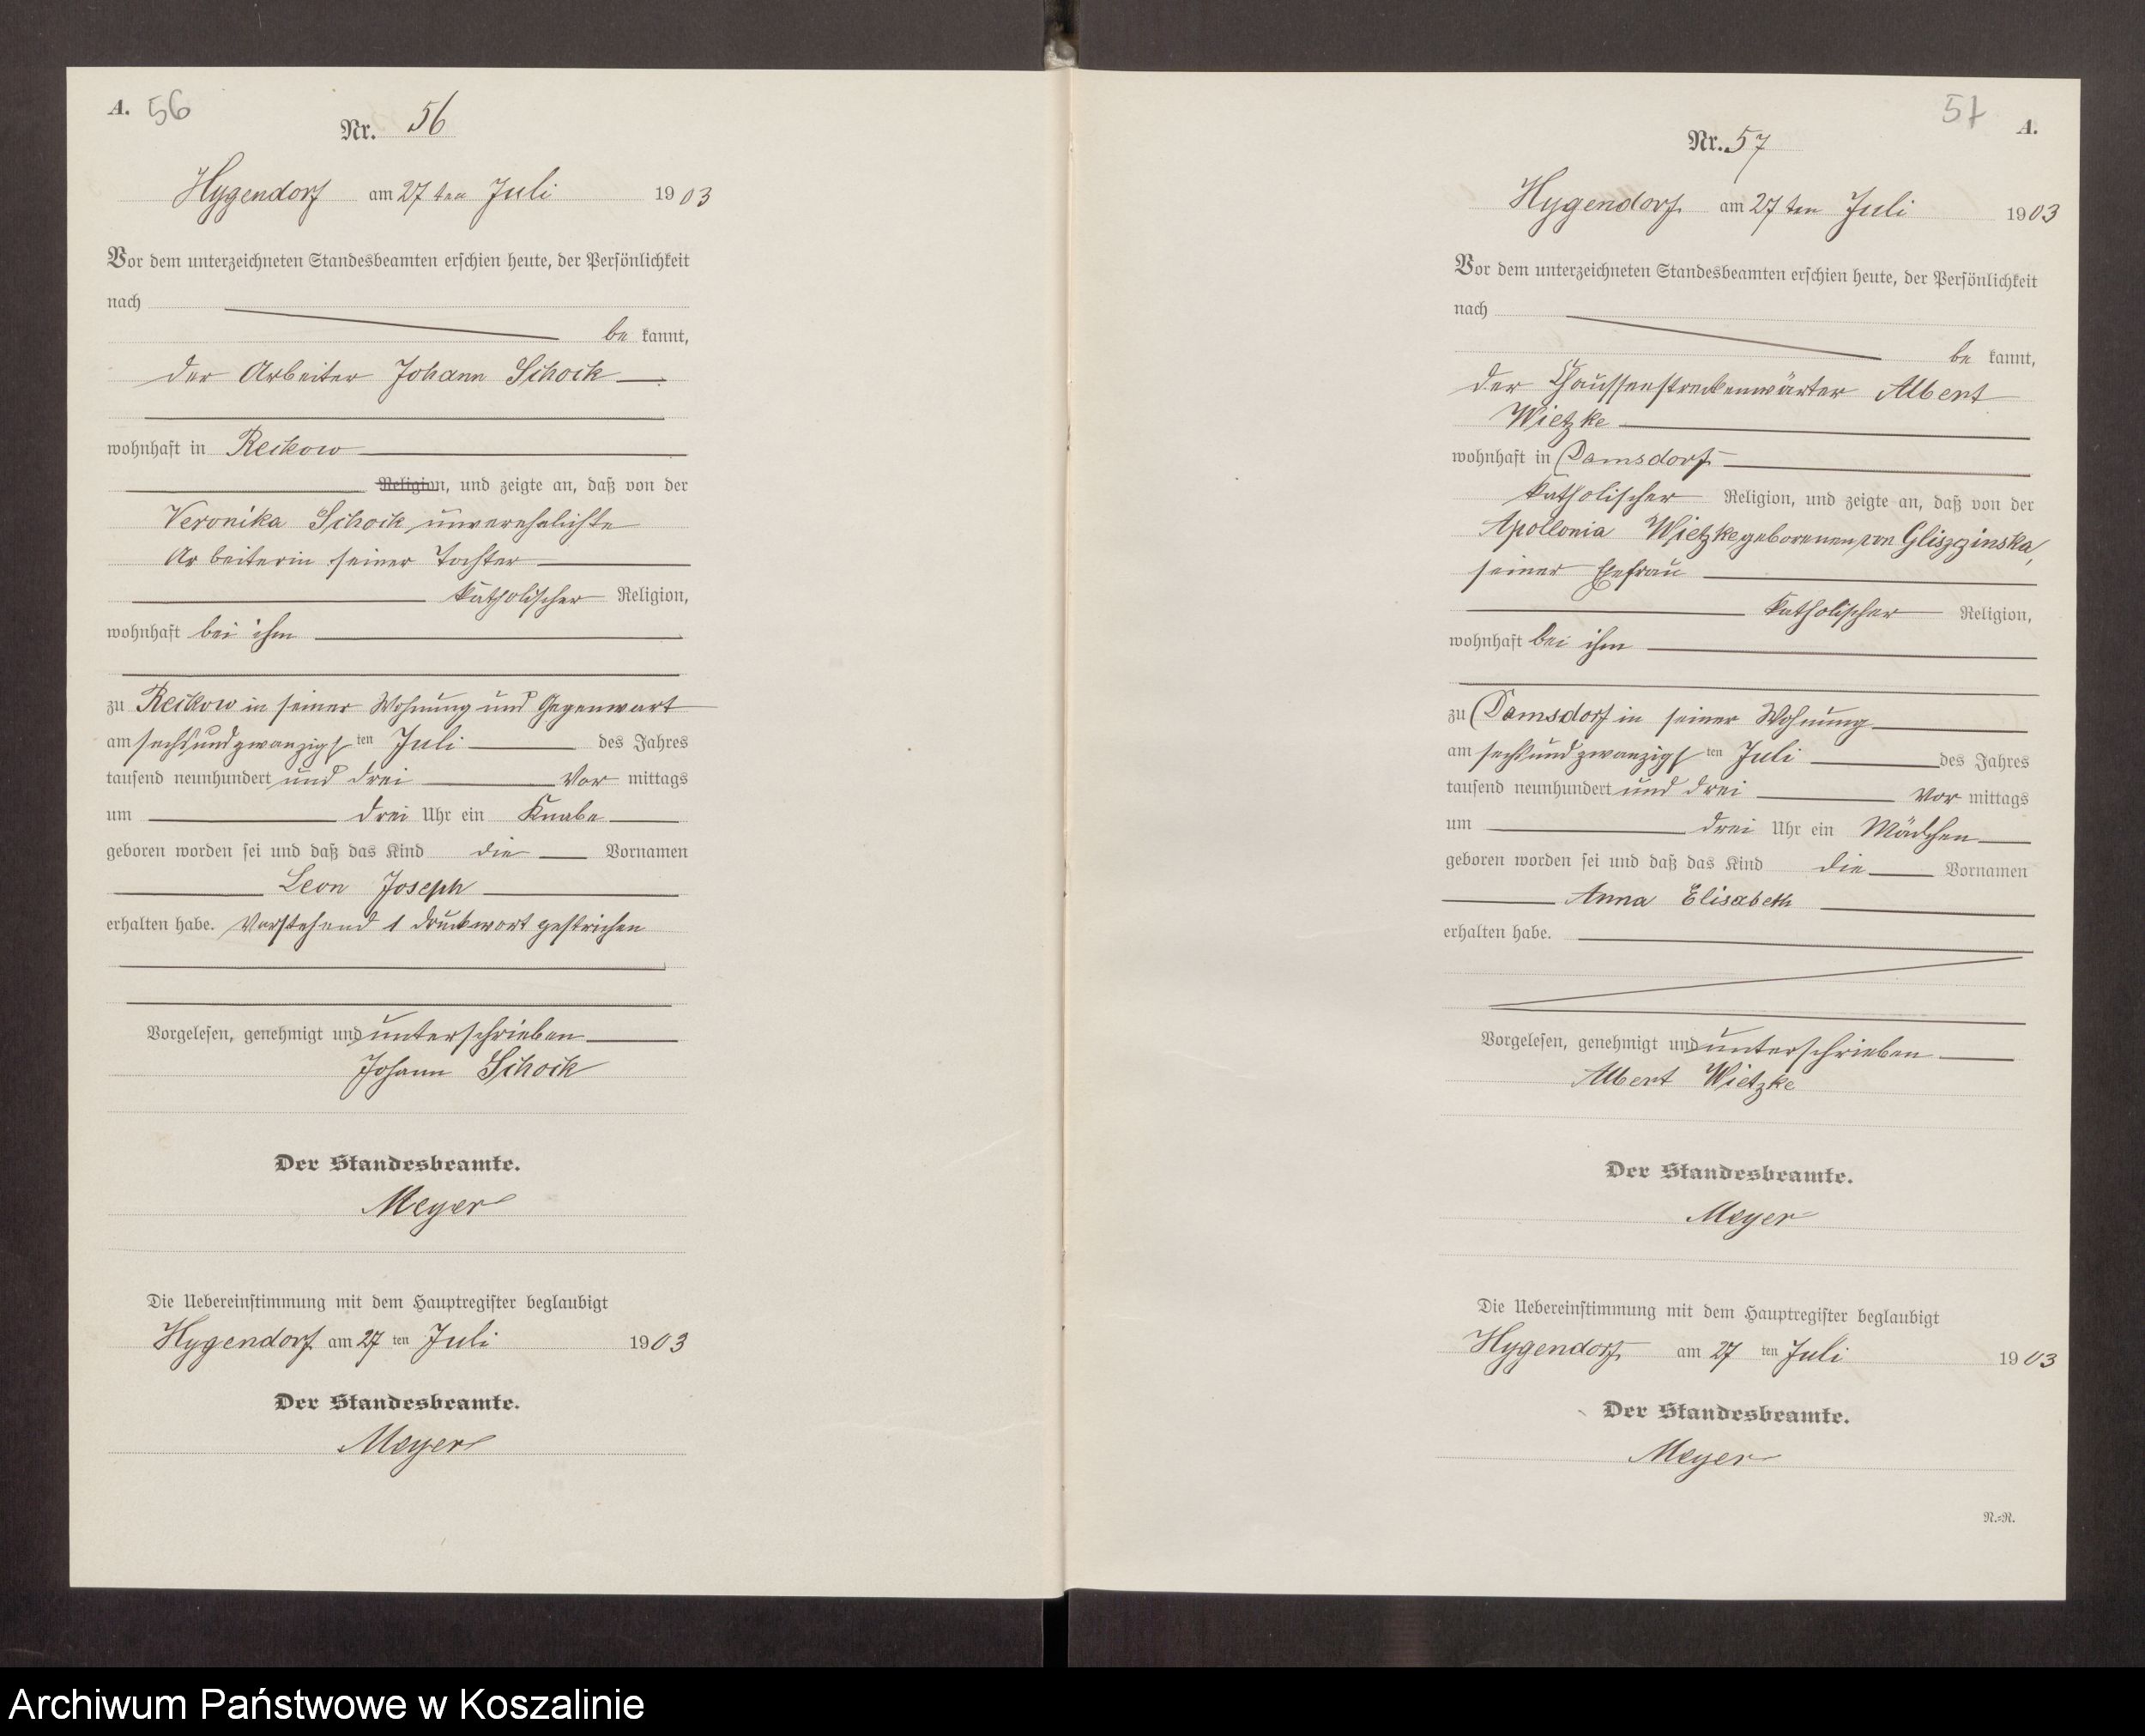 A. 56
Nr. 56
Hygendorf am 27 ten Juli 1903
Vor dem unterzeichneten Standesbeamten erschien heute, der Persönlichkeit
nach
be kannt,
der Arbeiter Johann Schock
wohnhaft in Reckow
Religion, und zeigte an, daß von der
Veronika Schock unverehelichte
Arbeiterin seiner Tochter
katholischer Religion,
wohnhaft bei ihm
zu Reckow in seiner Wohnung und Gegenwart
am sechsundzwanzigsten Juli des Jahres
tausend neunhundert und drei Vor mittags
um drei Uhr ein Knabe
geboren worden sei und daß das Kind die Vornamen
Leon Joseph
erhalten habe. Vorstehend 1 Druckwort gestrichen
Vorgelesen, genehmigt und unterschrieben
Johann Schock
Der Standesbeamte.
Meyer
Die Uebereinstimmung mit dem Hauptregister beglaubigt
Hygendorf am 27 ten Juli 1903
Der Standesbeamte.
Meyer
57 A.
Nr. 57
Hygendorf am 27 ten Juli 1903
Vor dem unterzeichneten Standesbeamten erschien heute, der Persönlichkeit
nach
be kannt,
der Chausseestreckenwärter Albert
Wietzke
wohnhaft in Damsdorf
katholischer Religion, und zeigte an, daß von der
Apollonia Wietzke geborenen von Gliszczinska,
seiner Ehefrau
katholischer Religion,
wohnhaft bei ihm
zu Damsdorf in seiner Wohnung
am sechsundzwanzigsten Juli des Jahres
tausend neunhundert und drei Vor mittags
um drei Uhr ein Mädchen
geboren worden sei und daß das Kind die Vornamen
Anna Elisabeth
erhalten habe.
Vorgelesen, genehmigt und unterschrieben
Albert Wietzke
Der Standesbeamte.
Meyer
Die Uebereinstimmung mit dem Hauptregister beglaubigt
Hygendorf am 27 ten Juli 1903
Der Standesbeamte.
Meyer
N.=R.
Archiwum Państwowe w Koszalinie